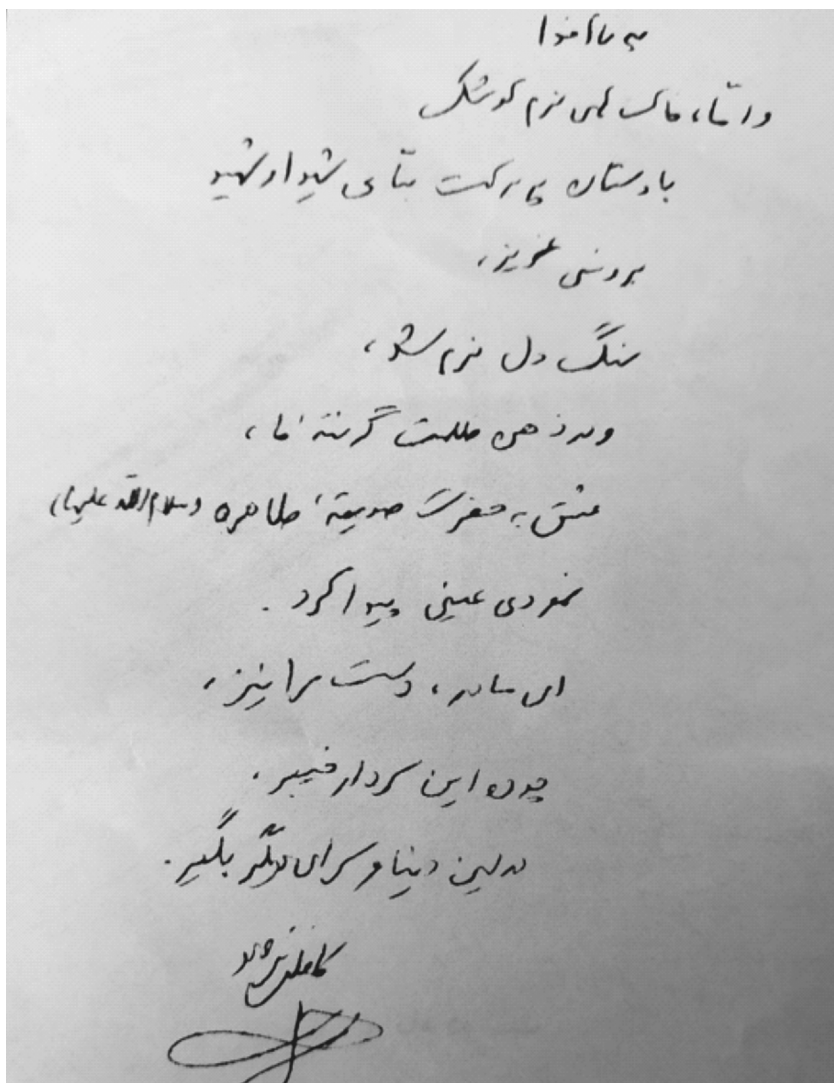 به نام خدا
و اما، خاک‌های نرم کوشک
با دستان پر برکت بنای شهید اوستا
برونسی عزیز،
سنگ دل نرم شد،
و در ذهن ظلمت گرفته ما،
عشق به حضرت صدیقه طاهره (سلام الله علیها)
نمودی عینی پیدا کرد.
ای مادر، دست مرا نیز،
چون این سردار خیبر،
در این دنیا و سرای دیگر بگیر.